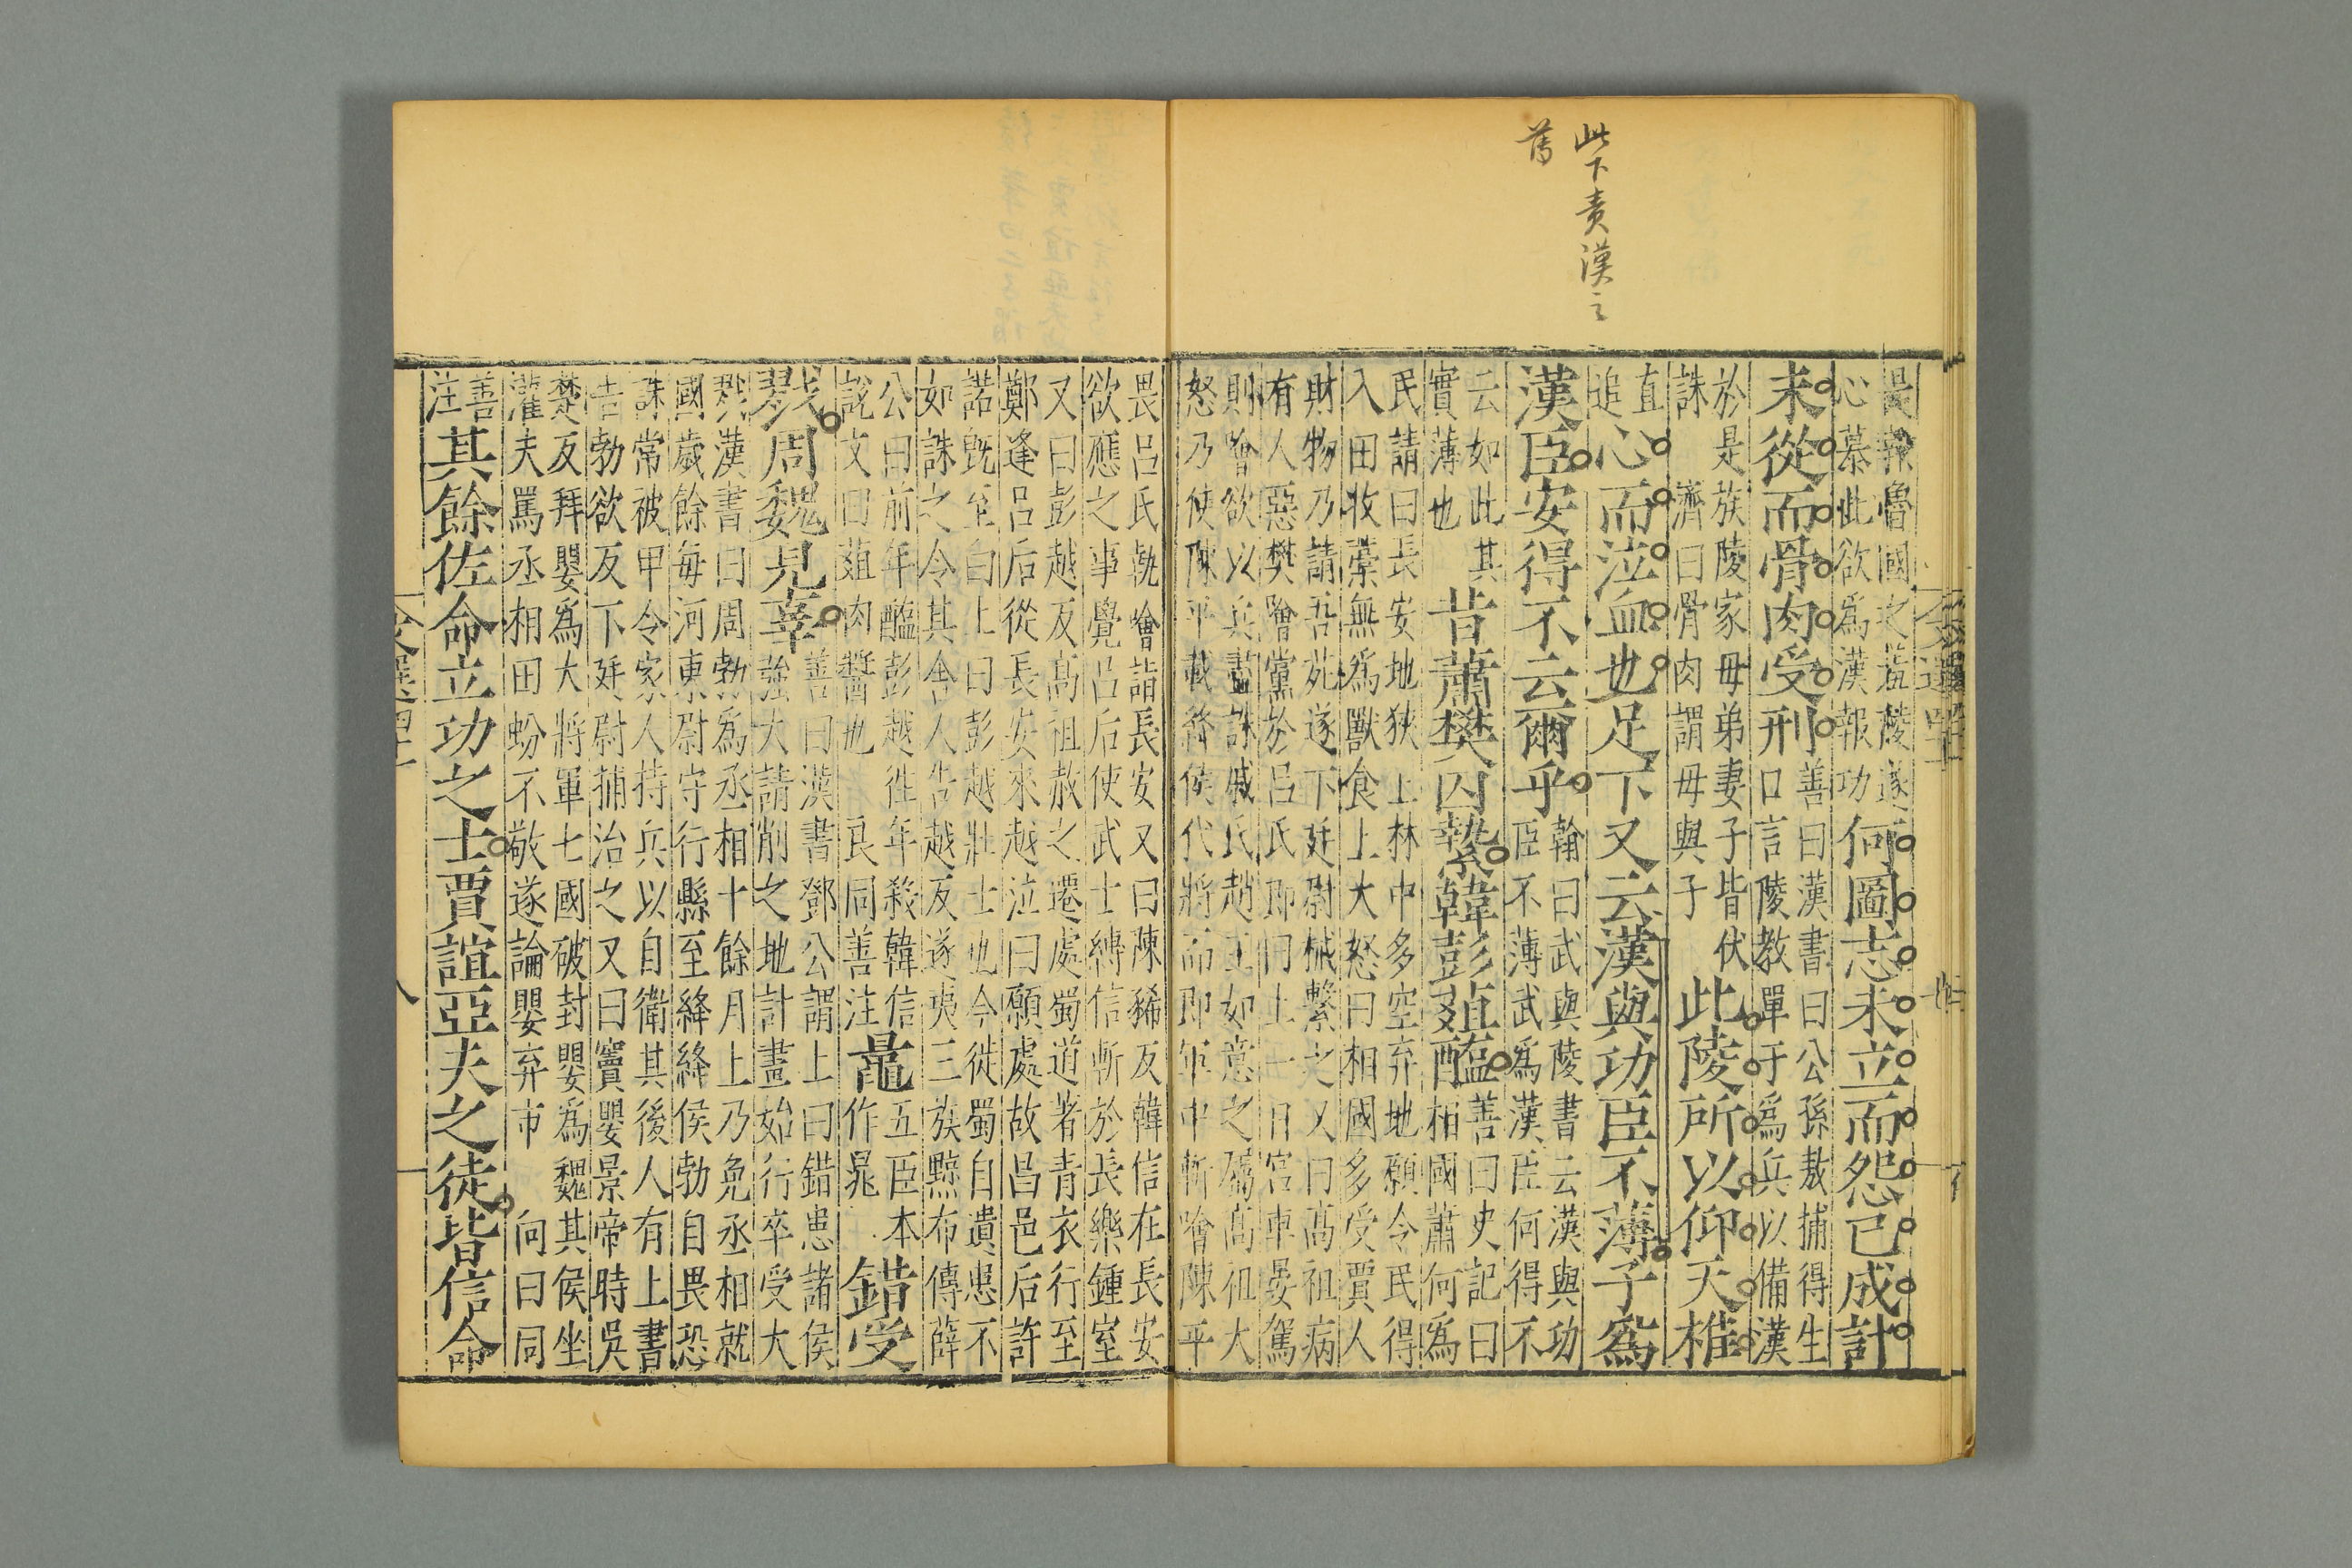 此下責漢之
舊
是報魯國之羞陵遂
心慕此欲爲漢報功
何圖志未立而怨已成計
未從而骨肉受刑
善曰漢書曰公孫敖捕得生
口言陵教單于爲兵以備漢
於是族陵家母弟妻子皆伏
誅　濟曰骨肉謂母與子
此陵所以仰天椎
直
追
心而泣血也足下又云漢與功臣不薄子爲
漢臣安得不云爾乎
翰曰武與陵書云漢與功
臣不薄武爲漢臣何得不
云如此其
實薄也
昔蕭樊囚縶韓彭葅醢
善曰史記曰
相國蕭何爲
民請曰長安地狹上林中多空弃地願令民得
入田收藁無爲獸食上大怒曰相國多受賈人
財物乃請吾苑遂下廷尉械繫之又曰高祖病
有人惡樊噲黨於呂氏即曰上一日宮車晏駕
則噲欲以兵盡誅戚氏趙王如意之屬高祖大
怒乃使陳平載絳侯代將而即軍中斬噲陳平
畏呂氏執噲詣長安又曰陳豨反韓信在長安
欲應之事覺呂后使武士縛信斬於長樂鍾室
又曰彭越反高祖赦之遷處蜀道著青衣行至
鄭逢呂后從長安來越泣曰願處故昌邑后許
諾旣至白上曰彭越壯士也今徙蜀自遺患不
如誅之令其舍人告越反遂夷三族黥布傳薛
公曰前年醢彭越徃年殺韓信
說文曰葅肉醬也　良同善注
鼂
五臣本
作晁
錯受
戮周魏見辜
善曰漢書鄧公謂上曰錯患諸侯
強大請削之地計畫始行卒受大
戮漢書曰周勃爲丞相十餘月上乃免丞相就
國歲餘每河東尉守行縣至絳絳侯勃自畏恐
誅常被甲令家人持兵以自衛其後人有上書
告勃欲反下廷尉捕治之又曰竇嬰景帝時吳
楚反拜嬰爲大將軍七國破封嬰爲魏其侯坐
灌夫罵丞相田蚡不敬遂論嬰弃市　向曰同
善
注
其餘佐命立功之士賈誼亞夫之徒皆信命
八